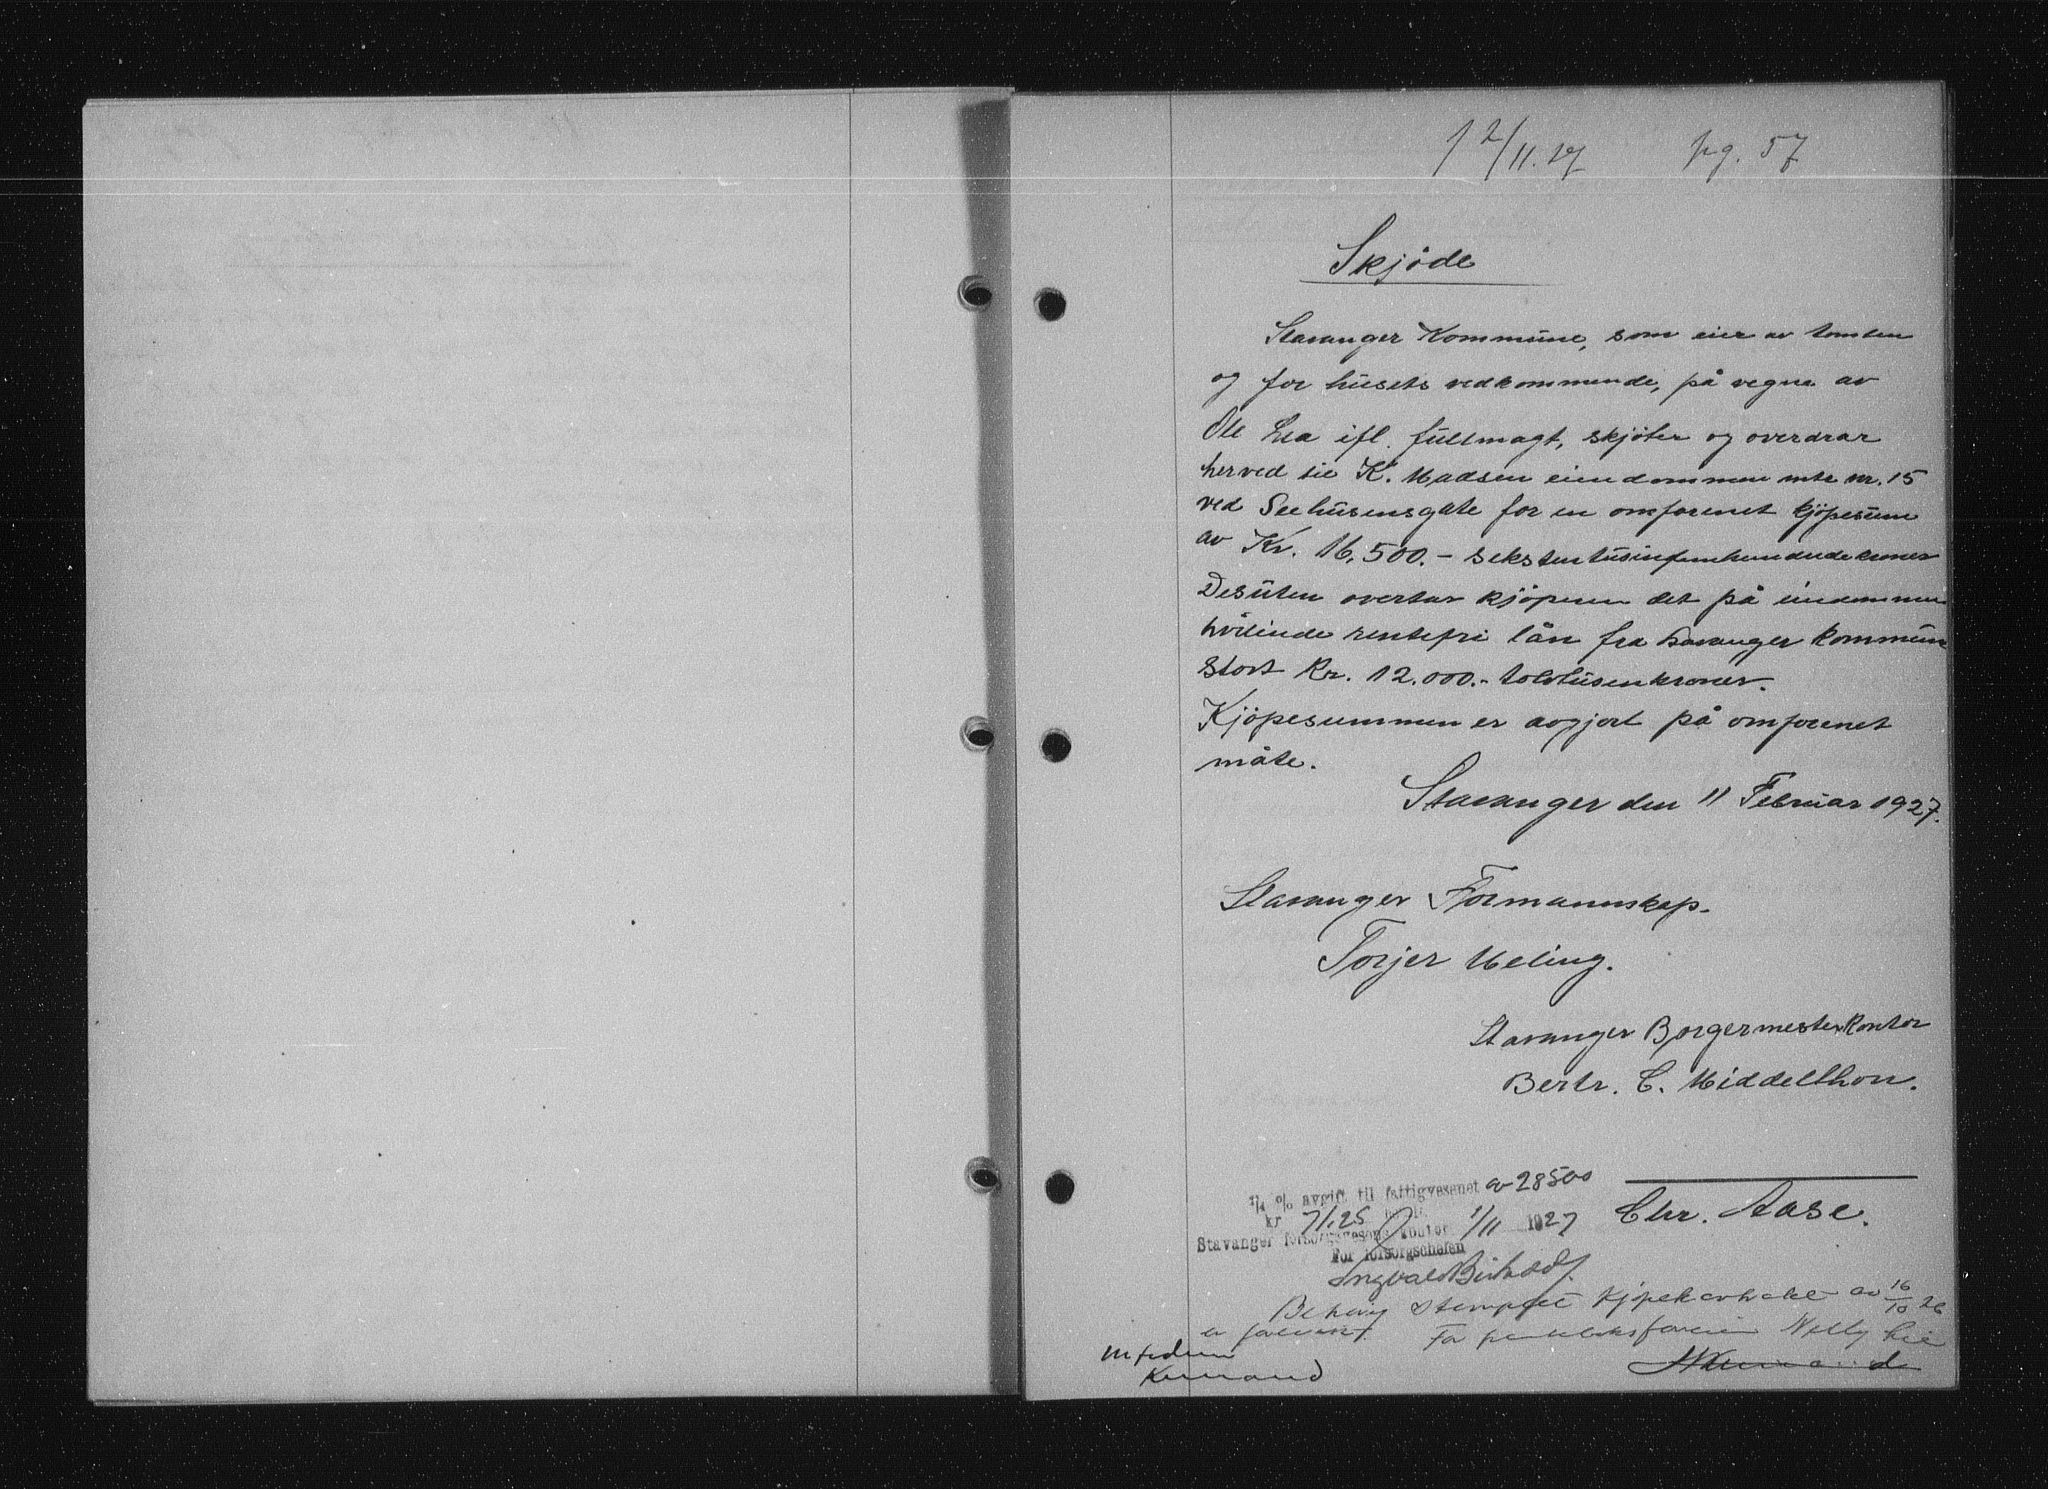 12/11.27 pg. 57
Skjøde
Stavanger Kommune, som eier av tomten
og for husets vedkommende, på vegne av
Ole Lea ifl. fullmagt, skjøter og overdrar
herved til K. Madsen eiendommen mtr nr. 15
ved Seehusensgate for en omforenet kjøpesum
av Kr. 16,500.- sekstentusinfemhundredekroner
Desuten overtar kjøperen det på eiendommen
hvilende rentefri lån fra Stavanger Kommune
stort Kr. 12.000.- tolvtusenkroner.
Kjøpesummen er avgjort på omforenet
måte.
Stavanger den 11 Februar 1927.
Stavanger Formannskap.
Torjer Meling.
Stavanger Borgermesterkontor
Bertr. C. Middelthon.
1/4 % avgift til fattigvesenet av 28500
kr 71.25 1/11 1927
Chr. Aase.
Stavanger forsorgsvesens kontor
For forsorgschefen
Ingvald
Behørig stemplet kjøpekontrakt av 16/10 26
er forevist. For Nelly Lie